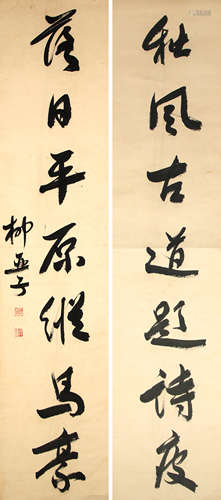 秋風古道題詩瘦
落日平原縱馬豪
柳亞子